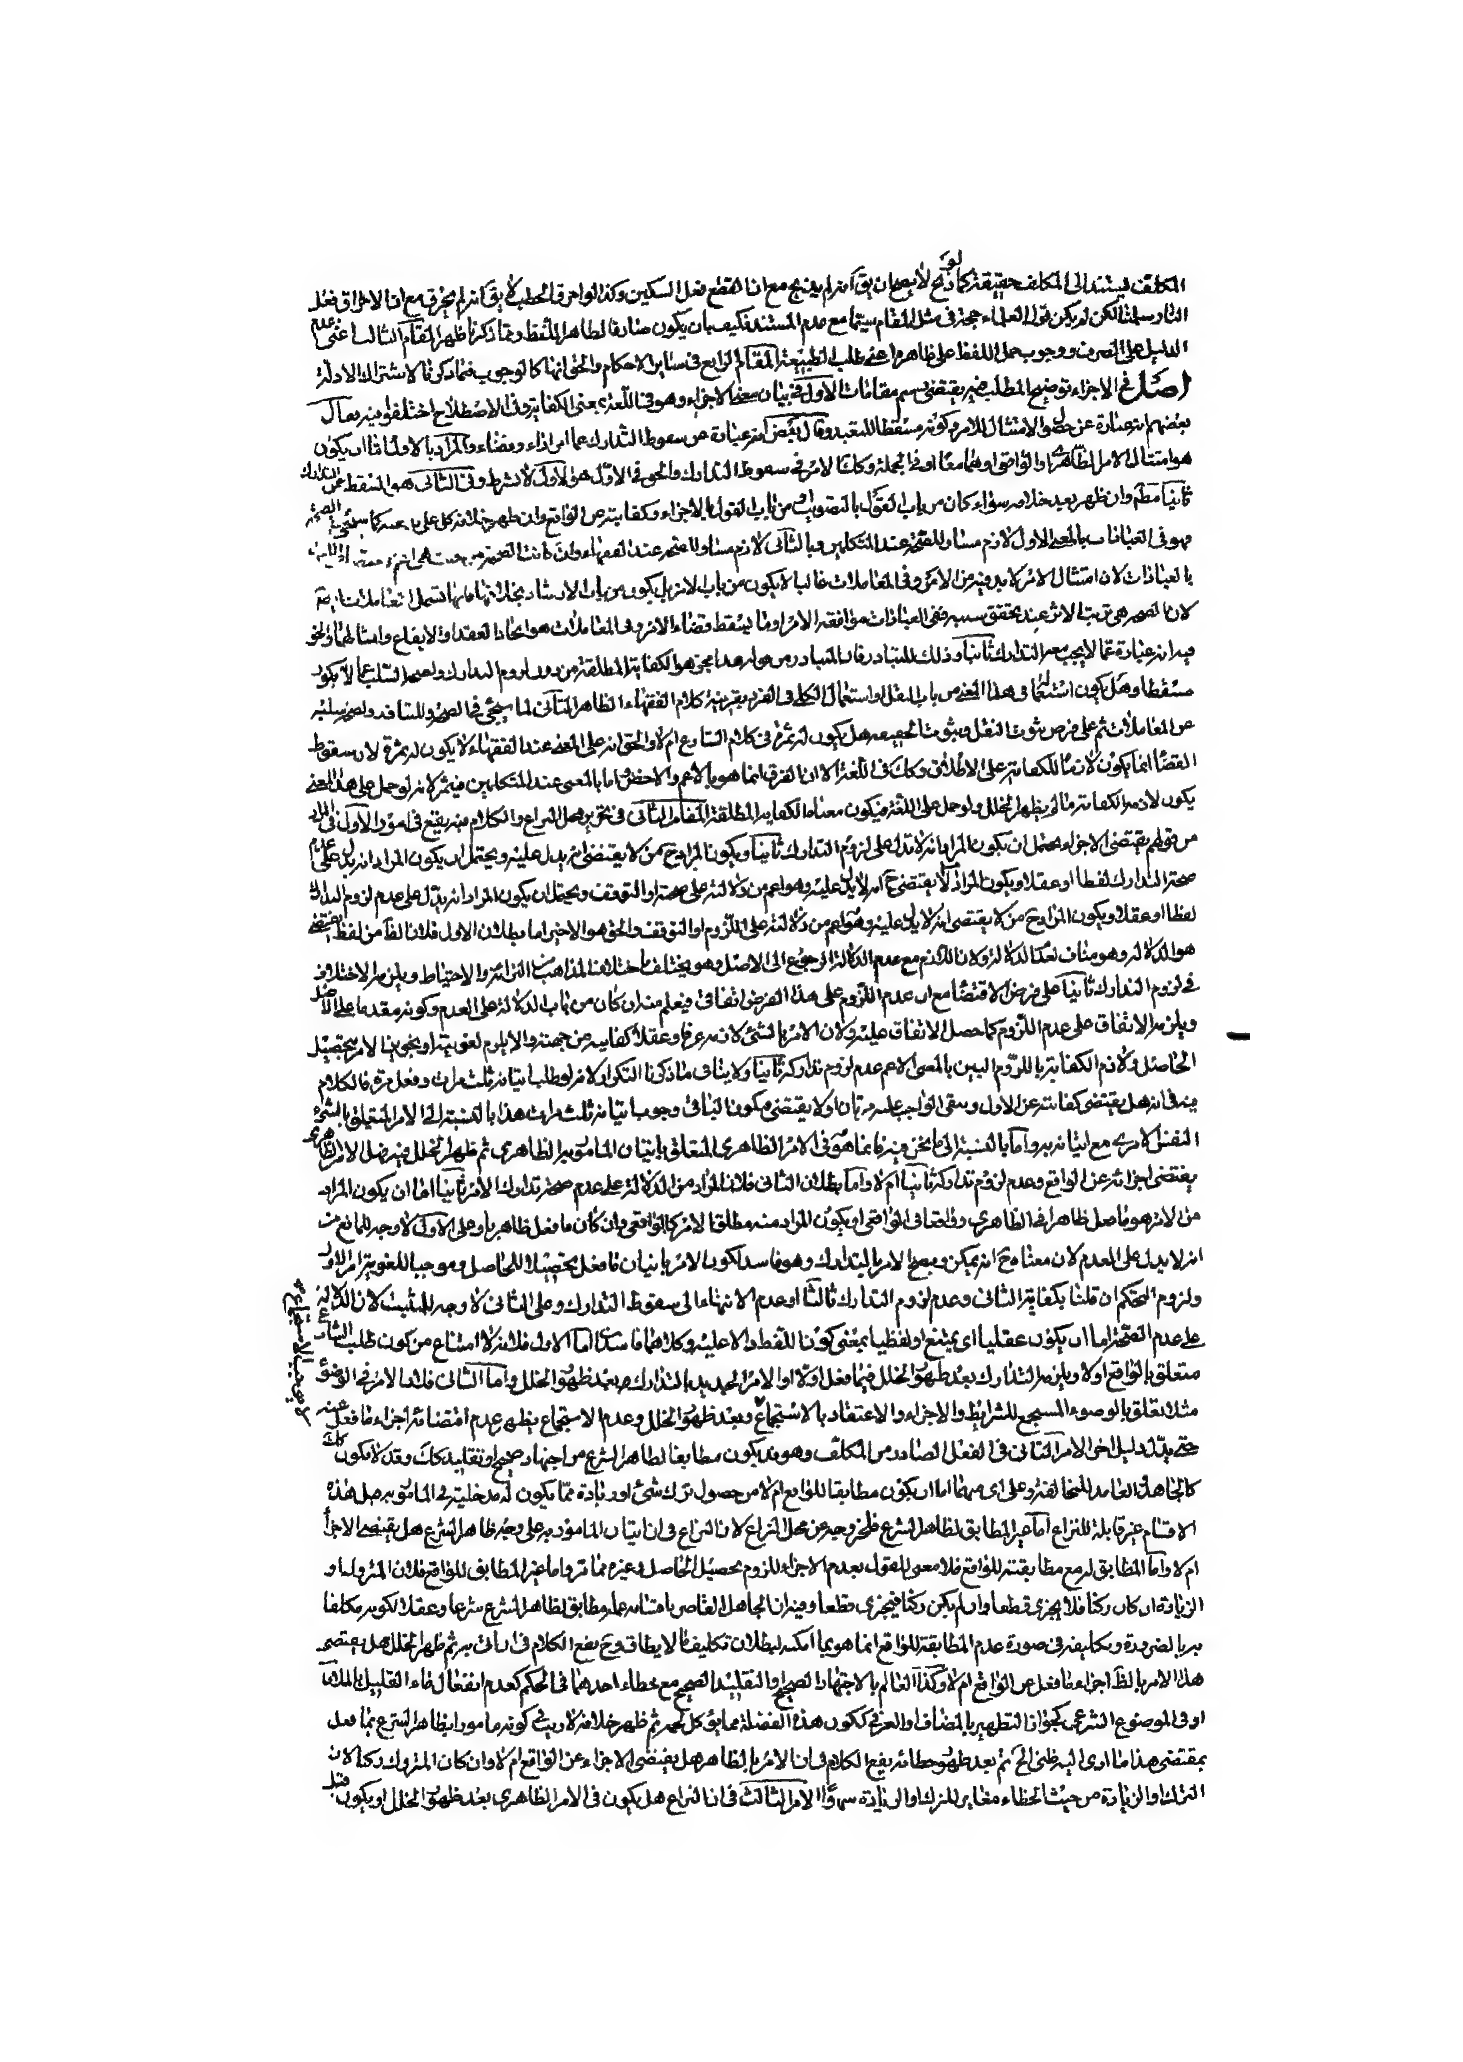 المكلف ليستند الى المكلف حقيقة كما لو ذبح لا يصح ان يق انه لم يذبح مع ان القطع فعل السكين وكذا لو احرق الحطب لا يق انه لم يحرق مع ان الاحراق فعل
النار سلمنا لكن لم يكن قول العلماء حجة فى مثل المقام سيما مع عدم المستند فكيف بان يكون صارفا لظاهر اللفظ ومما ذكرنا ظهر المقام الثالث اعنى عدم
الدليل على الصرف ووجوب حمل اللفظ على ظاهره اعنى طلب الطبيعة المقام الرابع فى ساير الاحكام والحق انها كالوجوب فيما ذكرنا لاشتراك الادلة
اصل فى الاجزاء توضيح المطلب فيه يقتضى رسم مقامات الاول فى بيان معنى الاجزاء وهو فى اللغة بمعنى الكفاية وفى الاصطلاح اختلفوا فيه فقال
بعضهم انه عبارة عن حصول الامتثال للامر وكونه مسقطا للتعبد وقال بعض انه عبارة عن سقوط التدارك عما امر اداء وقضاء والمراد بالاول اما ان يكون
هو امتثال الامر الظاهرى او الواقعى او هما معا او فى الجملة وكذا الامر فى سقوط التدارك والحق فى الاول هو الاول لا بشرط وفى الثانى هو المسقط عن التدارك
ثانيا مطم وان ظهر بعد خلافه سواء كان من باب القول بالتصويب او من باب القول بالاجزاء وكفايته عن الواقع وان ظهر خلافه كل على مذهبه كما سيجئ
فهو فى العبادات بالمعنى الاول لازم مساو للصحة عند المتكلمين وبالثانى لازم مساو للصحة عند الفقهاء وان كانت الصحة
بالعبادات لان امتثال الامر لا بد فيه من الامر وفى المعاملات غالبا لا يكون من باب الامر بل يكون من باب الارشاد بخلافها فانها تشمل المعاملات ايضا
لان الصحة هى ترتب الاثر عند تحقق سببه ففى العبادات موافقة الامر او ما يسقط قضاء الامر وفى المعاملات هو ايجاد العقد او الايقاع وامثالهما والحق
فيه انه عبارة عما لا يجب معه التدارك ثانيا وذلك للتبادر فان المتبادر من قولهم هذا مجز هو الكفاية المطلقة من دون لزوم التدارك ولصحة السلب عما لا يكون
مسقطا وهل يكون استعماله فى هذا المعنى من باب النقل او استعمال الكلى فى الفرد بقرينة كلام الفقهاء الظاهر الثانى لما سيجئ فى الصحة
عن المعاملات ثم على فرض ثبوت النقل وثبوت الحقيقة هل يكون له ثمرة فى كلام الشارع ام لا والحق انه على المعنى عند الفقهاء لا يكون له ثمرة لان سقوط
القضاء انما يكون لازما للكفاية على الاطلاق وكك فى اللغة الا ان الفرق انما هو بالاعم والاخص واما بالمعنى عند المتكلمين فيثمر لانه لو حمل على هذا المعنى
يكون لازمه الكفاية ما لم يظهر الخلل ولو حمل على اللغة فيكون معناه الكفاية المطلقة المقام الثانى فى تحرير محل النزاع والكلام فيه يقع فى امور الاول فى المراد
من قولهم يقتضى الاجزاء يحتمل ان يكون المراد انه لا تدل على لزوم التدارك ثانيا ويكون المراد ح من لا يقتضى انه يدل عليه ويحتمل ان يكون المراد انه يدل على عدم
صحة التدارك لفظا او عقلا ويكون المراد بلا يقتضى ح انه لا يدل عليه وهو اعم من دلالته على صحته او التوقف ويحتمل ان يكون المراد انه يدل على عدم لزوم التدارك
لفظا او عقلا ويكون المراد ح من لا يقتضى انه لا يدل عليه وهو اعم من دلالته على اللزوم او التوقف والحق هو الاخير اما بطلان الاول فلان الظ من لفظ يقتضى
هو الدلالة وهو مناف لعدم الدلالة ولان اللازم مع عدم الدلالة الرجوع الى الاصل وهو يختلف باختلاف المذاهب من البرائة والاحتياط ويلزمه الاختلاف
فى لزوم التدارك ثانيا على فرض الاقتضاء مع ان عدم اللزوم على هذا الفرض اتفاقى فيعلم منه ان كان من باب الدلالة على العدم وكونه مقدما على الاصل
ويلزمه الاتفاق على عدم اللزوم كما حصل الاتفاق عليه ولان الامر بالشئ لازمه عرفا وعقلا كفايته من جهته والا يلزم لغويته او يجئ بنا الامر بتحصيل
الحاصل ولازم الكفاية باللزوم البين بالمعنى الاعم عدم لزوم تداركه ثانيا ولا ينافى ما ذكرنا التكرار لانه لو طلب اتيانه ثلث مرات وفعل مرة فالكلام
فيه فى انه هل يقتضى كفايته عن الاول وبقى الواجب عليه مرتان او لا يقتضى فيكون الباقى وجوب اتيانه ثلث مرات هذا بالنسبة الى الامر المتعلق بالشئ
النفس الامرى مع اتيانه به واما بالنسبة الى ما نحن فيه فانما هو فى الامر الظاهرى المتعلق باتيان المامور به الظاهرى ثم ظهر الخلل فيه فهل الامر الظاهرى
يقتضى اجزائه عن الواقع وعدم لزوم تداركه ثانيا ام لا واما بطلان الثانى فلان المراد من الدلالة على عدم صحة تدارك الامر ثانيا اما ان يكون المراد
من الامر هو ما فعل ظاهرا فى الظاهرى وواقعا فى الواقعى او يكون المراد منه مطلقا لامر كالواقعى وان كان ما فعل ظاهريا وعلى الاولى لا وجه للمانع من
انه لا يدل على العدم لان معناه ح انه يمكن ويصح الامر بالتدارك وهو فاسد لكون الامر باتيان ما فعل تحصيلا للحاصل وموجبا للغوية امر الاول
ولزوم التحكم ان قلنا بكفاية الثانى وعدم لزوم التدارك ثالثا او عدم الانتهاء الى سقوط التدارك وعلى الثانى لا وجه للمثبت لان الدلالة
على عدم الصحة اما ان يكون عقليا اى يمتنع او لفظيا بمعنى كون اللفظ دالا عليه وكلاهما فاسدان اما الاول فلانه لا امتناع من كون طلب الشارع
متعلق بالواقع اولا ويلزمه التدارك بعد ظهور الخلل فيما فعل اولا او الامر الجديد بالتدارك بعد ظهور الخلل واما الثانى فلان الامر فى الوضوء
مثلا تعلق بالوضوء المستجمع للشرايط والاجزاء والاعتقاد بالاستجماع وبعد ظهور الخلل وعدم الاستجماع يظهر عدم اقتضائه اجزاء ما فعل عنه
حتى يدل دليل اخر الامر الثانى فى الفعل الصادر من المكلف وهو قد يكون مطابقا لظاهر الشرع من اجتهاد صحيح او تقليد كك وقد لا يكون كك
كالجاهل العامد للمخالفة وعلى اى منهما اما ان يكون مطابقا للواقع ام لا من حصول ترك شئ او زيادة مما يكون له مدخلية فى المامور به فهل هذه
الاقسام غير قابلة للنزاع اما غير المطابق لظاهر الشرع فلخروجه عن محل النزاع لان النزاع فى ان اتيان المامور به على وجه ظاهر الشرع هل يقتضى الاجزاء
ام لا واما المطابق له مع مطابقته للواقع فلا معنى للقول بعدم الاجزاء للزوم تحصيل الحاصل وغيره مما مر واما غير المطابق للواقع فلان المتروك او
الزيادة ان كان ركنا فلا يجزى قطعا وان لم يكن ركنا فيجزى قطعا وفيه ان الجاهل القاصر ما فعله مطابق لظاهر الشرع شرعا وعقلا لكونه مكلفا
به بالضرورة وتكليفه فى صورة عدم المطابقة للواقع انما هو بما امكنه لبطلان تكليف ما لا يطاق وح يقع الكلام فى ان ما اتى به ثم ظهر الخلل هل يقتضى
هذا الامر بالظ اجزاء ما فعل عن الواقع ام لا وكذا العالم بالاجتهاد الصحيح او التقليد الصحيح مع خطاء احدهما فى الحكم كعدم انفعال ماء القليل بالملاقات
او فى الموضوع الشرعى كجواز التطهير بالمضاف او العرفى ككون هذه الفضلة مما يؤكل لحمه ثم ظهر خلافه لا ريب فى كونه مامورا بظاهر الشرع بما فعل
بمقتضى هذا ما ادى اليه ظنى الخ ثم بعد ظهور خطائه يقع الكلام فى ان الامر بالظاهر هل يقتضى الاجزاء عن الواقع ام لا وان كان المتروك ركنا لان
الترك او الزيادة من حيث الخطاء مغاير للترك او الزيادة سهوا الامر الثالث فى ان النزاع هل يكون فى الامر الظاهرى بعد ظهور الخلل او يكون قبل